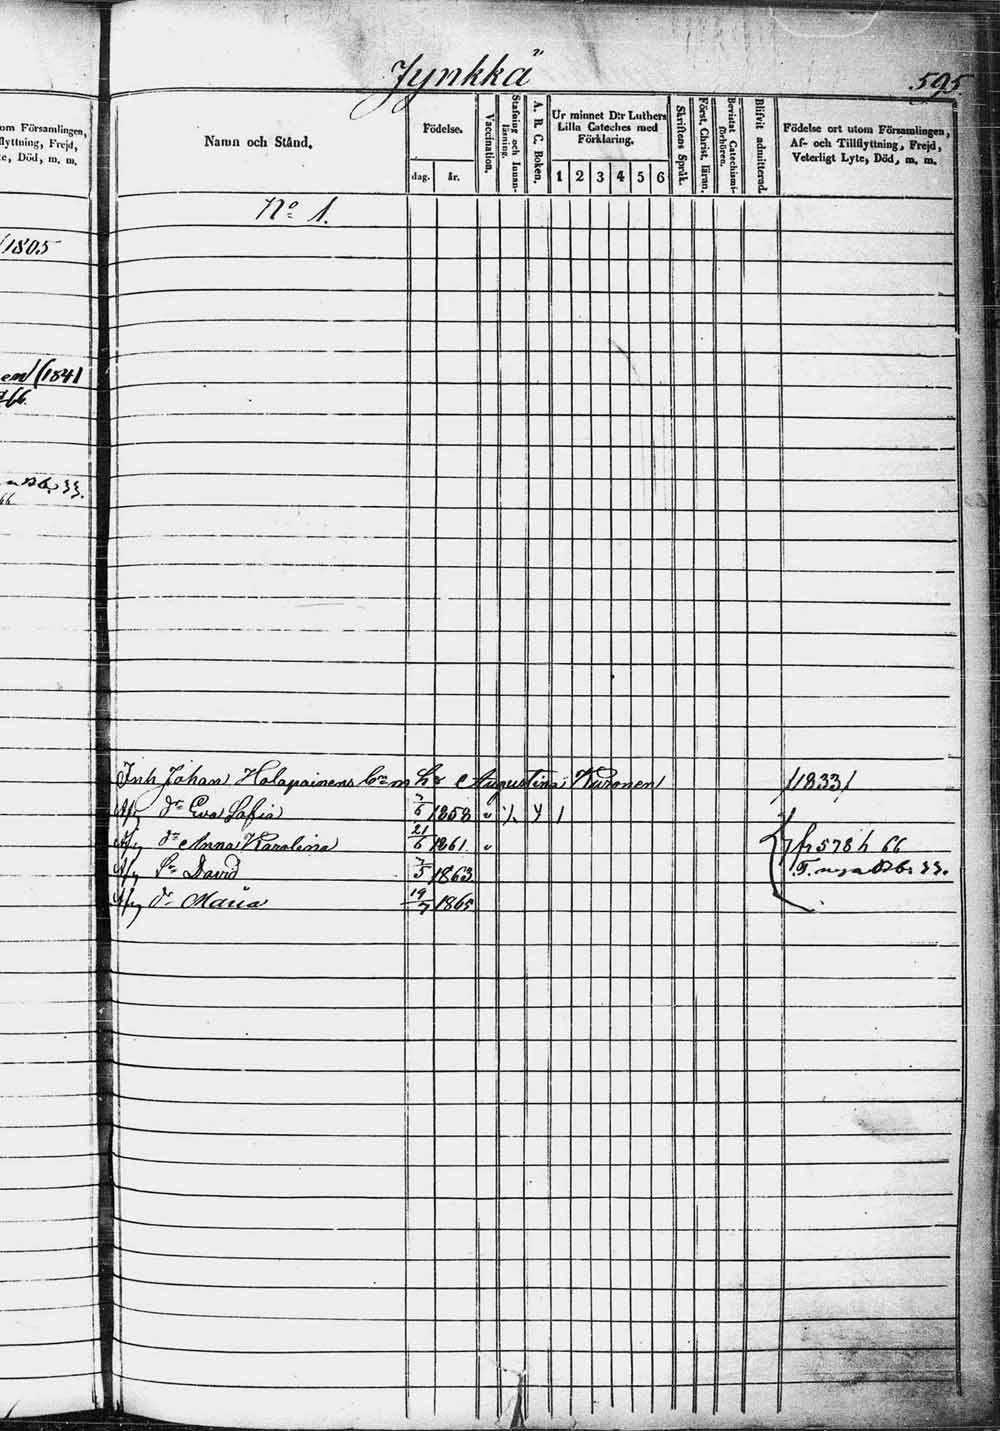 Jynkkä
595
om Församlingen,
flyttning, Frejd,
te, Död, m. m.
Namn och Stånd.
Födelse.
dag.
år.
Vaccination.
Stafning och Innan-
läsning.
A. B. C. Boken.
Ur minnet D:r Luthers
Lilla Cateches med
Förklaring.
1 2 3 4 5 6
Skriftens Språk.
Först. Christ. läran.
Bevistat Catechismi-
förhören.
Blifvit admitterad.
Födelse ort utom Församlingen,
Af- och Tillflyttning, Frejd,
Veterligt Lyte, Död, m. m.
No 1.
/1805
en/(1841
66.
33.
66
Inh Johan Holapainens br m h:r Augustina Kuronen /1833/
dr Eva Sofia 7/6 1858 " 1
dr Anna Karolina 21/6 1861 " fr 578 h 66
Sn David 7/5 1863 T. nya Bb 33.
dr Maria 19/7 1865